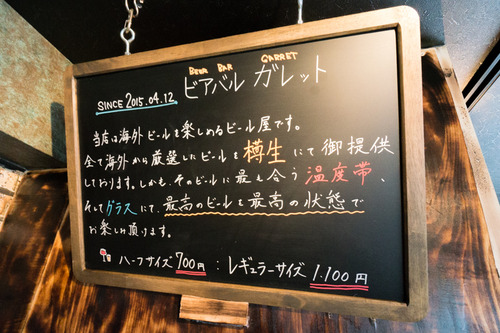 BEER BAR GARRET
ビアバル ガレット
SINCE 2015.04.12
当店は海外ビールを楽しめるビール屋です。
全て海外から厳選したビールを樽生にて御提供
しております。しかも、そのビールに最も合う温度帯、
そしてグラスにて、最高のビールを最高の状態で
お楽しみ頂けます。
ハーフサイズ 700円 : レギュラーサイズ 1.100円